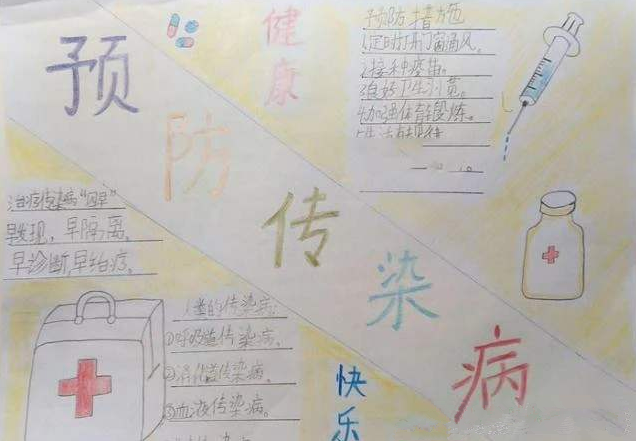 预防传染病
健康
预防措施
1.定时打开门窗通风。
2.接种疫苗。
3.良好卫生习惯。
4.加强体育锻炼。
治疗传染病“四早”
早发现，早隔离，
早诊断，早治疗。
的传染病：
①呼吸道传染病。
②消化道传染病。
③血液传染病。
快乐